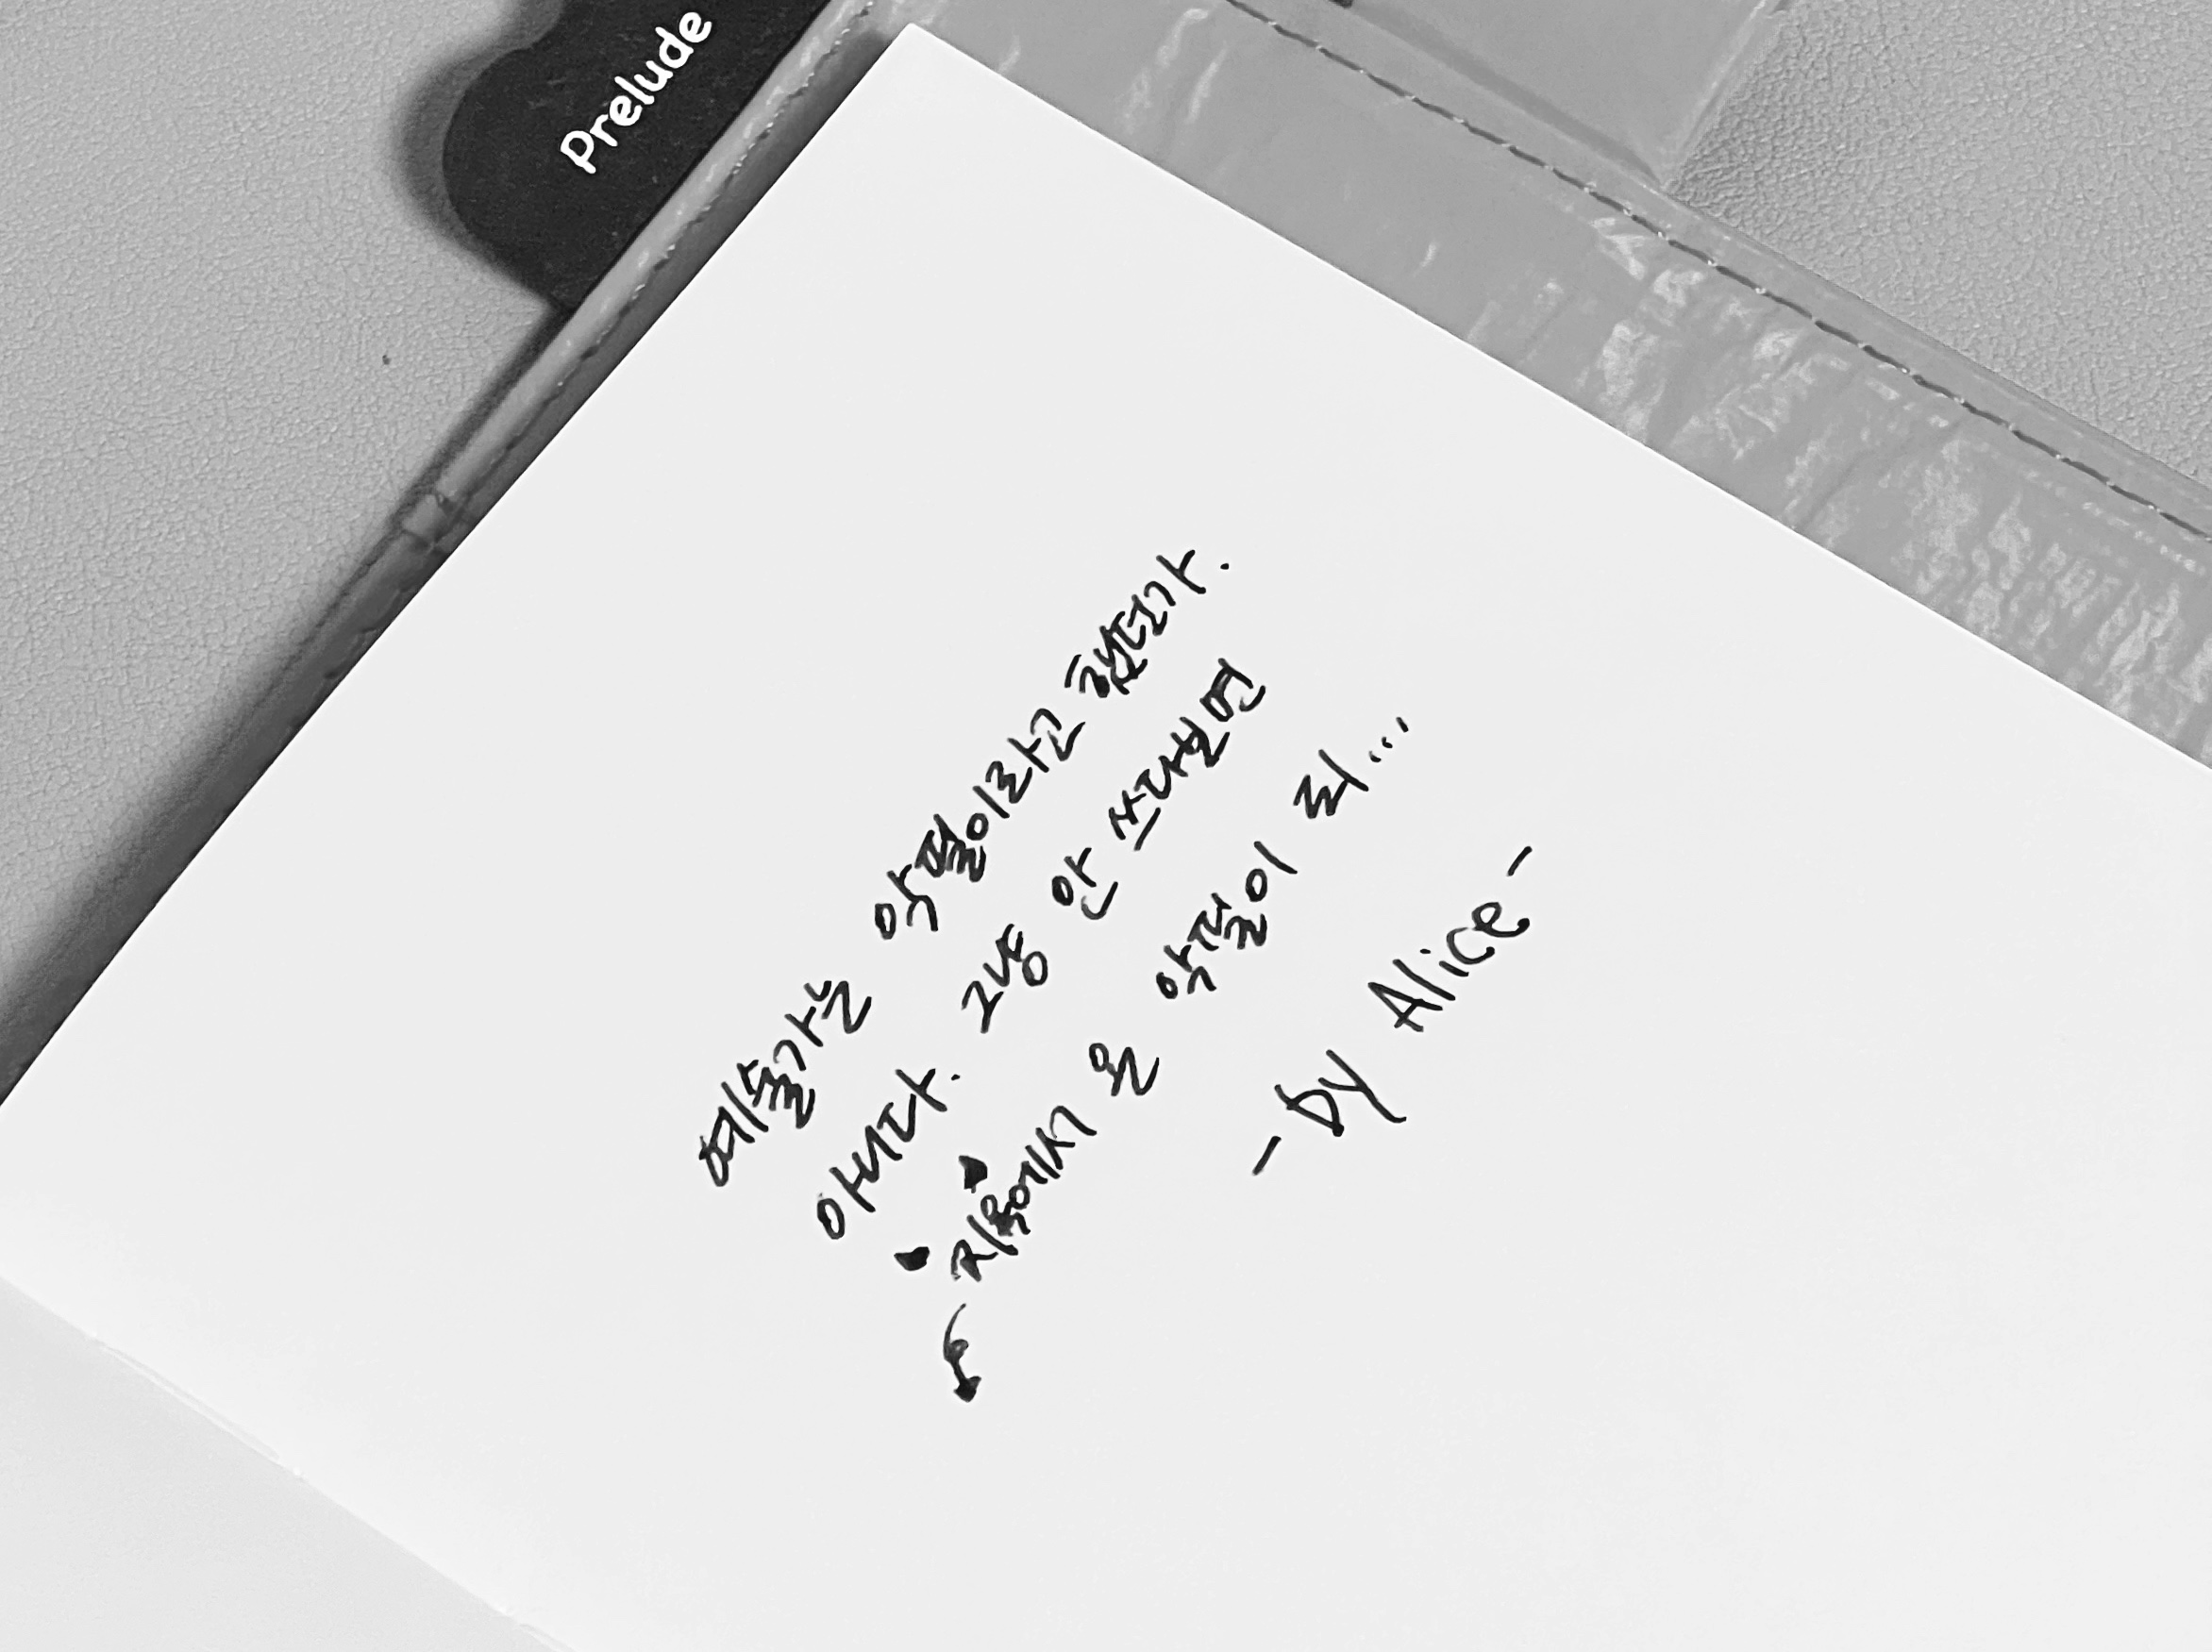 Prelude
예술가는 악필이라고 했던가.
아니다. 그냥 안 쓰다보면
지옥에서 온 악필이 돼...
- by Alice -